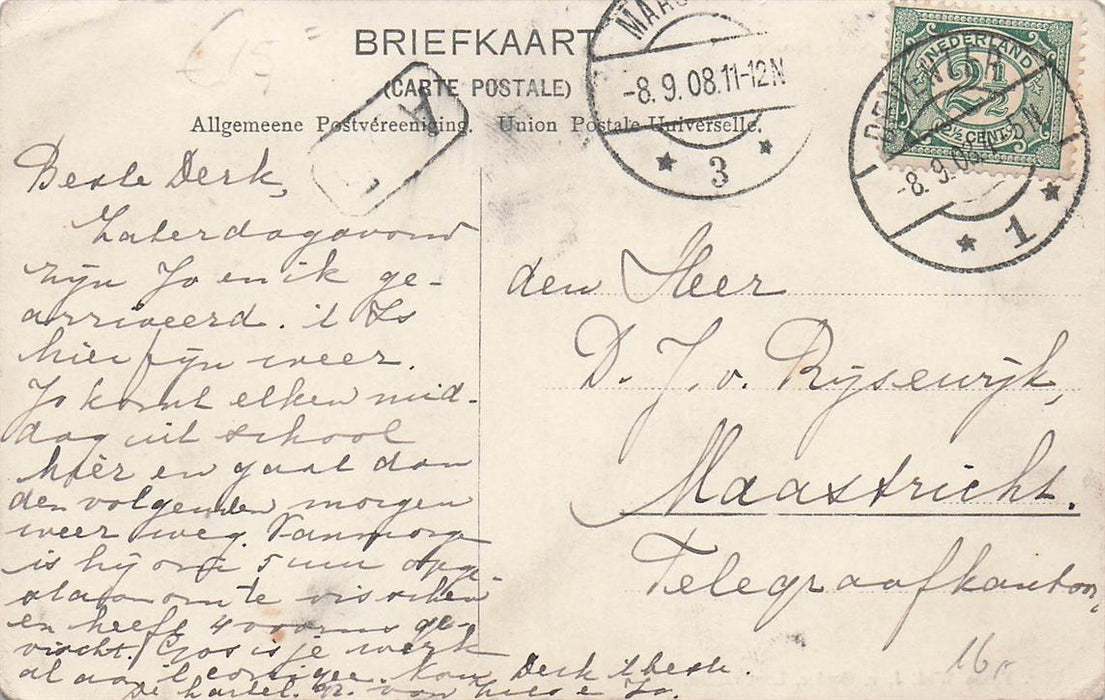 BRIEFKAART
(CARTE POSTALE)
Allgemeene Postvereeniging. Union Postale Universelle.
-8.9.08.11-12N
3
NEDERLAND
2½
2½ CENT
DEVENTER
-8.9.08
5N
1
Beste Derk,
Zaterdagavond
zijn Jo en ik ge-
arriveerd. 't Is
hier fijn weer.
Jo komt elken mid-
dag uit school
hier en gaat dan
den volgenden morgen
weer weg. Vanmorgen
is hij om 5 uur opge-
staan om te visschen
en heeft 4 voorns ge-
vischt. is je werk
al aan Derk 't beste.
De hartel. gr. van en Jo.
den Heer
D. J. v. Rijsewijk,
Maastricht.
Telegraafkantoor,